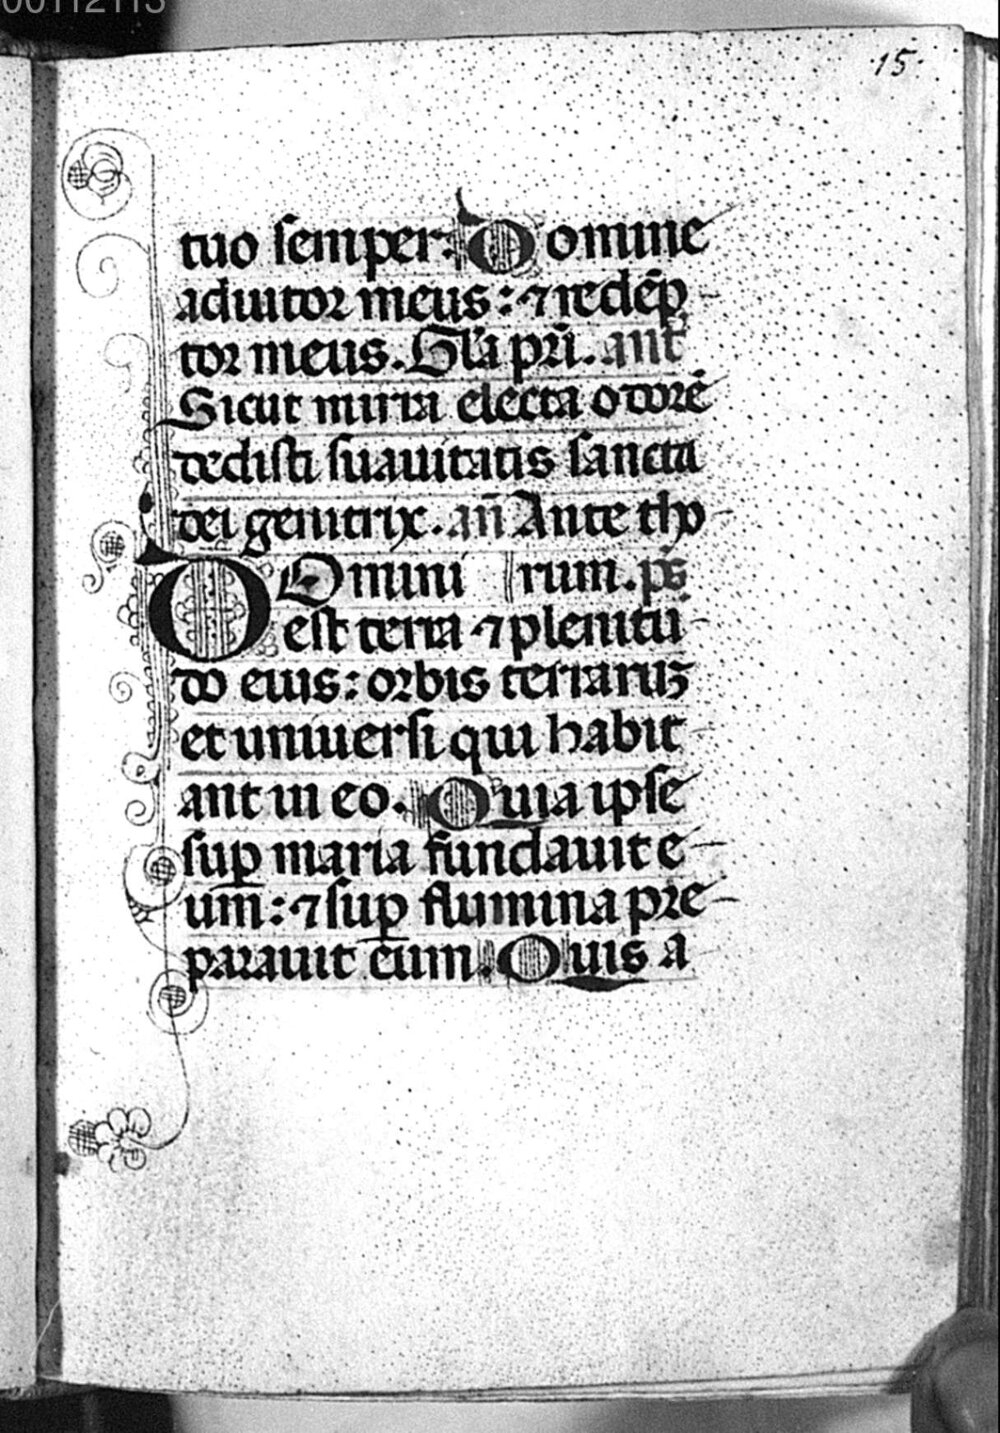 00112113
15
tuo semper. Domine
adiutor meus: ⁊ redēp
tor meus. Gl̄a pr̄i. ant̄
Sicut mirra electa odorē
dedisti suauitatis sancta
dei genitrix. an̄ Ante tho
DOmini rum. ps̄
est terra ⁊ plenitu
do eius: orbis terraruꝫ
et uniuersi qui habit
ant in eo. Quia ipse
suꝑ maria fundauit e
um: ⁊ suꝑ flumina pre
parauit eum. Quis a